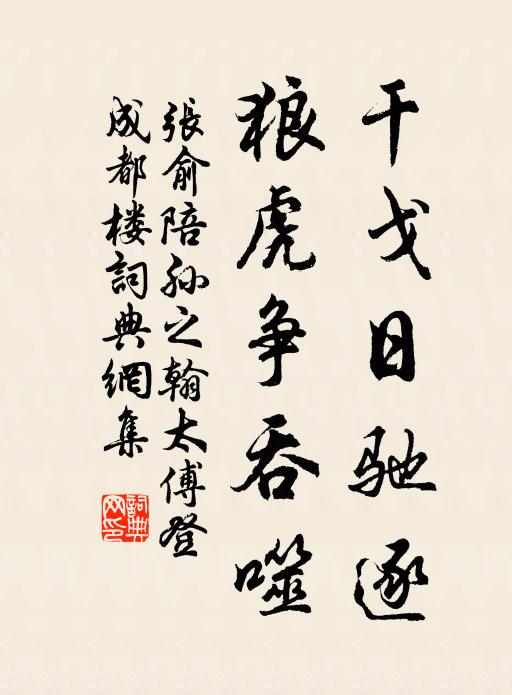 干戈日驰逐
狼虎争吞噬
張俞陪孙之翰太傅登
成都楼詞典網集
詞典
网印